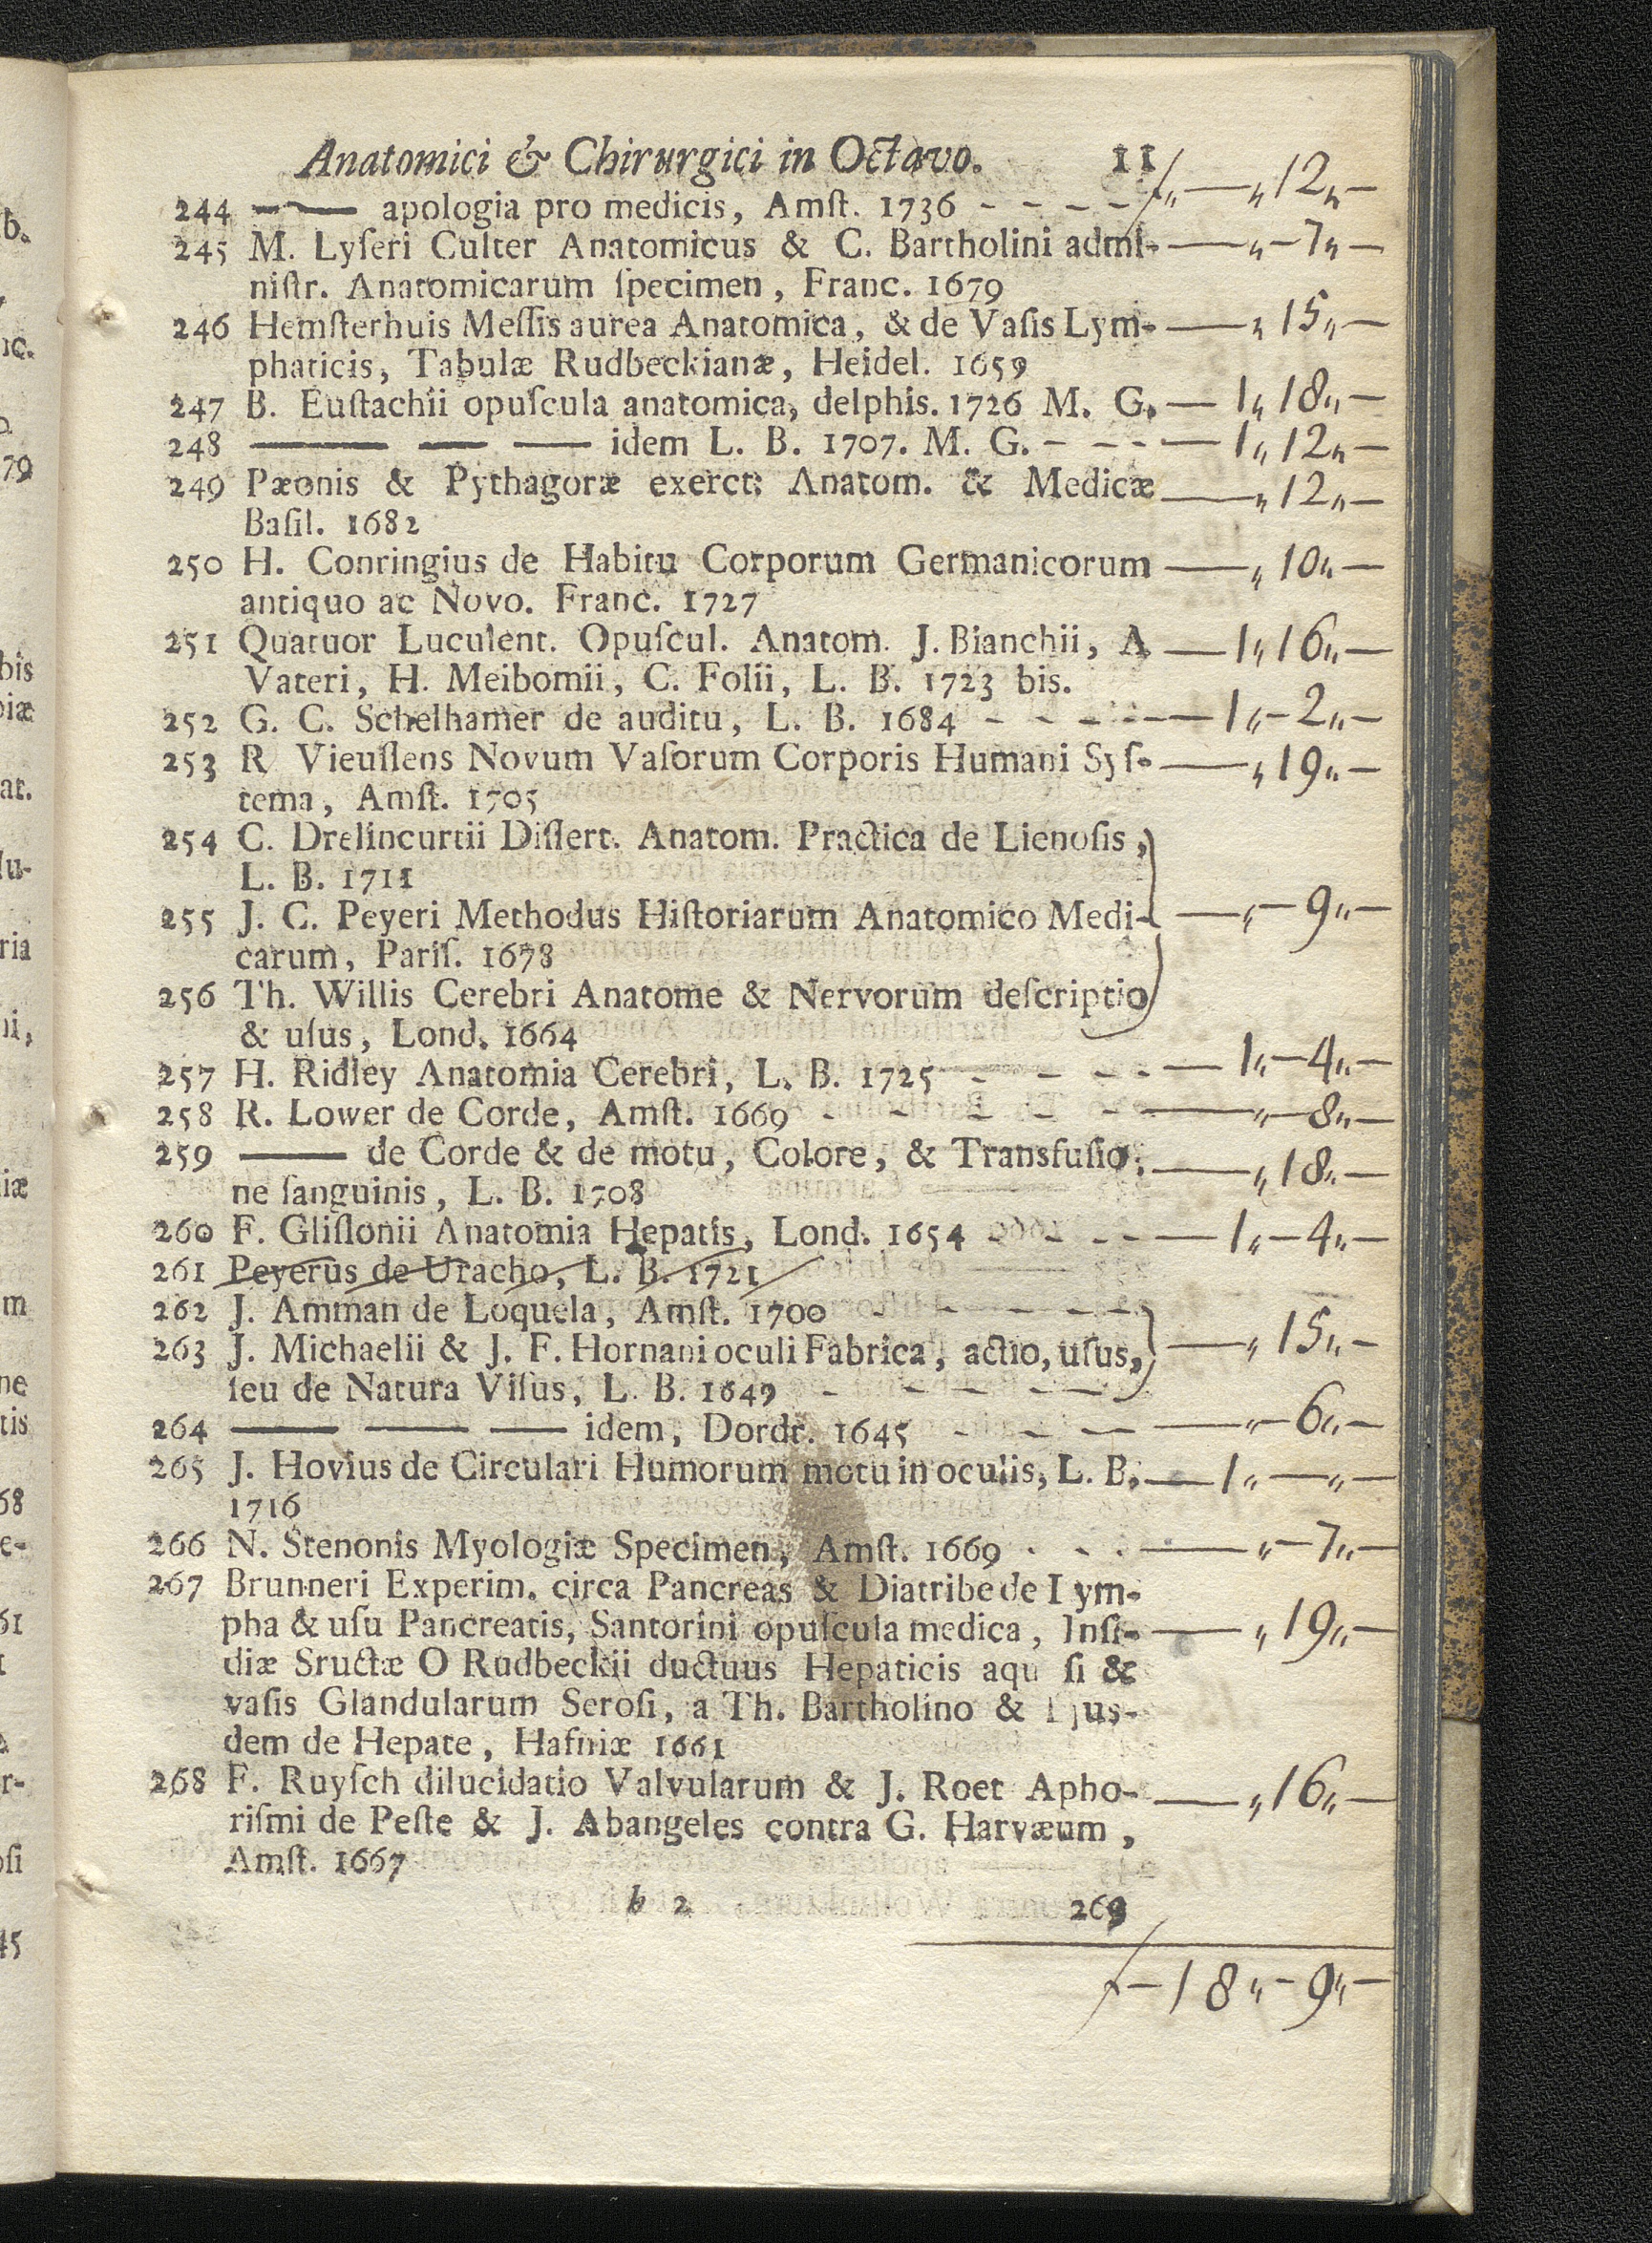 Anatomici & Chirurgici in Octavo. 11
244 — — apologia pro medicis, Amſt. 1736 - - - - ƒ „ — „ 12 „ —
245 M. Lyſeri Culter Anatomicus & C. Bartholini admi- — „ — 7 „ —
niſtr. Anatomicarum ſpecimen, Franc. 1679
246 Hemſterhuis Meſſis aurea Anatomica, & de Vaſis Lym- — „ 15 „ —
phaticis, Tabulæ Rudbeckianæ, Heidel. 1659
247 B. Euſtachii opuſcula anatomica, delphis. 1726 M. G. — 1 „ 18 „ —
248 — — — idem L. B. 1707. M. G. - - - — 1 „ 12 „ —
249 Pæonis & Pythagoræ exerct: Anatom. & Medicæ — „ 12 „ —
Baſil. 1682
250 H. Conringius de Habitu Corporum Germanicorum — „ 10 „ —
antiquo ac Novo. Franc. 1727
251 Quatuor Luculent. Opuſcul. Anatom. J. Bianchii, A — 1 „ 16 „ —
Vateri, H. Meibomii, C. Folii, L. B. 1723 bis.
252 G. C. Schelhamer de auditu, L. B. 1684 - - - - — 1 „ — 2 „ —
253 R Vieuſſens Novum Vaſorum Corporis Humani Syſ- — „ 19 „ —
tema, Amſt. 1705
254 C. Drelincurtii Diſſert. Anatom. Practica de Lienoſis,
L. B. 1711
255 J. C. Peyeri Methodus Hiſtoriarum Anatomico Medi- — „ — 9 „ —
carum, Pariſ. 1678
256 Th. Willis Cerebri Anatome & Nervorum deſcriptio
& uſus, Lond. 1664
257 H. Ridley Anatomia Cerebri, L. B. 1725 - - - - — 1 „ — 4 „ —
258 R. Lower de Corde, Amſt. 1669 - - - - — „ — 8 „ —
259 — de Corde & de motu, Colore, & Transfuſio- — „ 18 „ —
ne ſanguinis, L. B. 1708
260 F. Gliſſonii Anatomia Hepatis, Lond. 1654 - - - — 1 „ — 4 „ —
261 Peyerus de Uracho, L. B. 1721
262 J. Amman de Loquela, Amſt. 1700 - - - - -
263 J. Michaelii & J. F. Hornani oculi Fabrica, actio, uſus, — „ 15 „ —
ſeu de Natura Viſus, L. B. 1649 - - - - -
264 — — — idem, Dordr. 1645 - - - — „ — 6 „ —
265 J. Hovius de Circulari Humorum motu in oculis, L. B. — 1 „ — „ —
1716
266 N. Stenonis Myologiæ Specimen, Amſt. 1669 - - - — „ — 7 „ —
267 Brunneri Experim. circa Pancreas & Diatribe de I ym-
pha & uſu Pancreatis, Santorini opuſcula medica, Inſi- — „ 19 „ —
diæ Sructæ O Rudbeckii ductuus Hepaticis aqu ſi &
vaſis Glandularum Seroſi, a Th. Bartholino & Ejus-
dem de Hepate, Hafniæ 1661
268 F. Ruyſch dilucidatio Valvularum & J. Roet Apho- — „ 16 „ —
riſmi de Peſte & J. Abangeles contra G. Harvæum,
Amſt. 1667
b 2 269
ƒ — 18 „ — 9 „ —